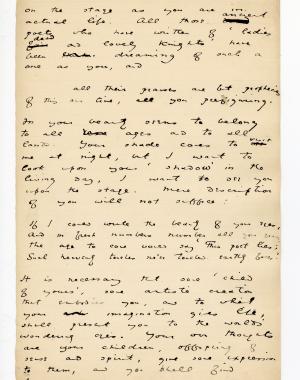 on the stage as you are in
actual life. All those ancient
poets who have written of 'ladies
dead and lovely knights' have
been dreaming of such a
one as you, and
all their praises are but prophecies
of this our time, all you prefiguring.
In your beauty seems to belong
to all ages and to all
lands. Your shade comes to visit
me at night, but, I want to
look upon your 'shadow' in the
living day, I want to see you
upon the stage. Mere description
of you will not suffice:
If I could write the beauty of your eyes,
And in fresh numbers number all your
the age to come would say 'This poet lies;
Such heavenly touches ne'er touched earthly faces';
It is necessary that some 'child
of yours', some artistic creation
that embodies you, and to which
your imagination gives life,
shall present you to the world's
wondering eyes. Your own thoughts
are your children, offspring of
sense and spirit, give some expression
to them, and you shall find